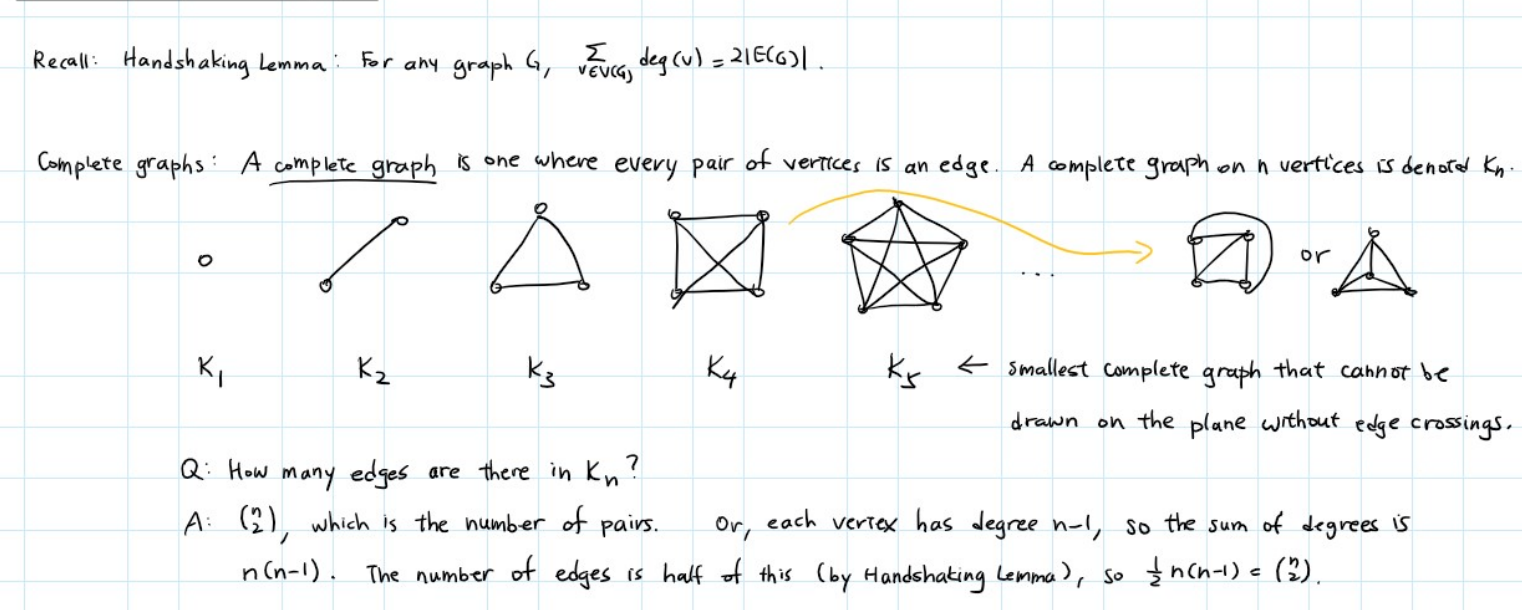 Recall: Handshaking Lemma: For any graph G, ∑_{v∈V(G)} deg(v) = 2|E(G)|.
Complete graphs: A complete graph is one where every pair of vertices is an edge. A complete graph on n vertices is denoted Kₙ.
... or
K₁ K₂ K₃ K₄ K₅ ← smallest complete graph that cannot be
drawn on the plane without edge crossings.
Q: How many edges are there in Kₙ?
A: (n 2), which is the number of pairs. Or, each vertex has degree n-1, so the sum of degrees is
n(n-1). The number of edges is half of this (by Handshaking Lemma), so ½ n(n-1) = (n 2).